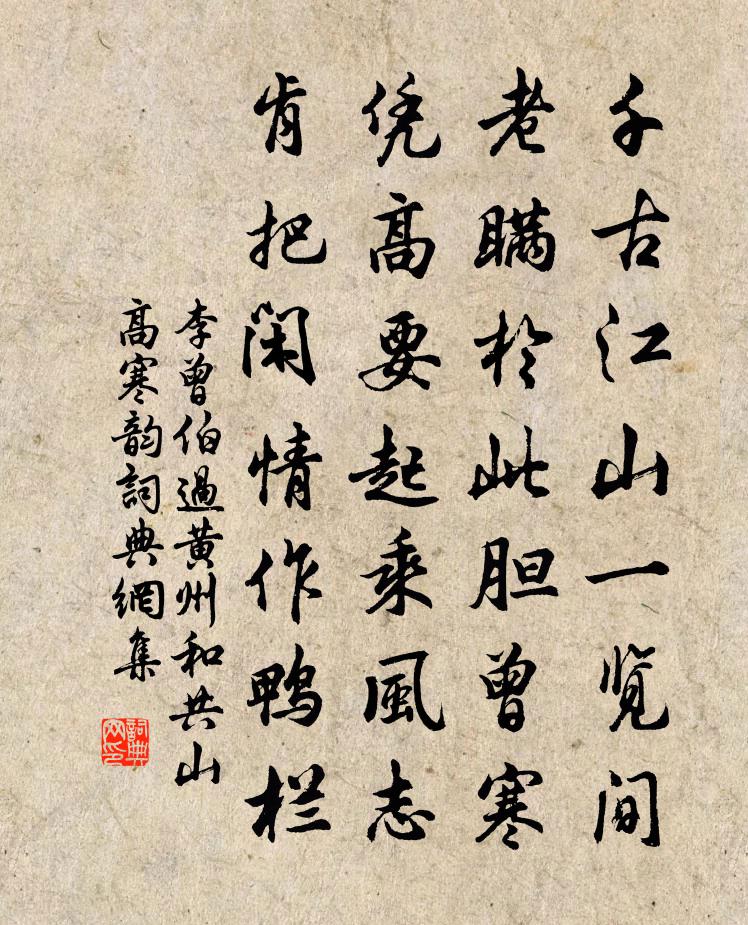 千古江山一览间
老瞒於此胆曾寒
凭高要起乘風志
肯把闲情作鸭栏
李曾伯過黄州和共山
高寒韵詞典網集
詞典
网印